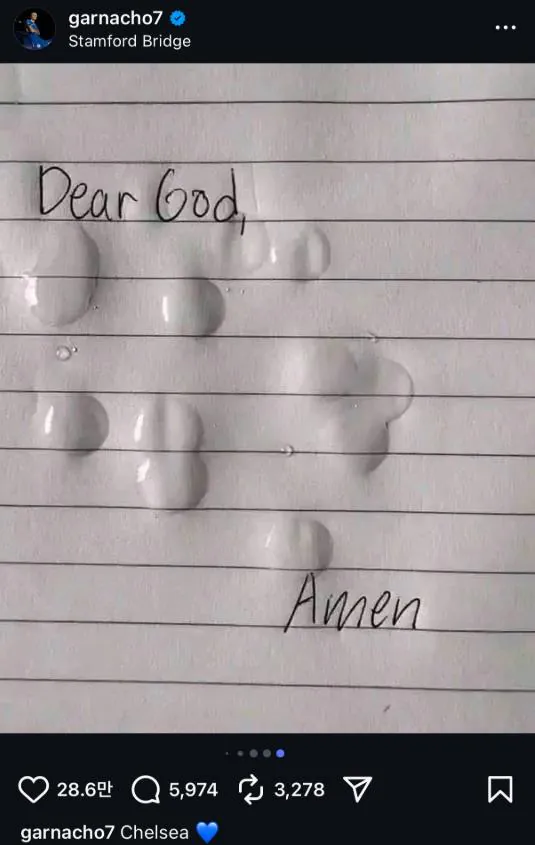 garnacho7
Stamford Bridge
Dear God,
Amen
28.6만 5,974 3,278
garnacho7 Chelsea 💙